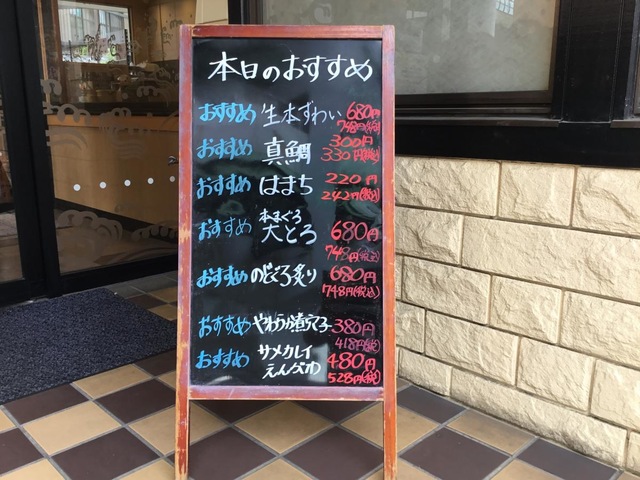 本日のおすすめ
おすすめ 生本ずわい 680円
748円(税込)
おすすめ 真鯛 300円
330円(税込)
おすすめ はまち 220円
242円(税込)
おすすめ 本まぐろ
大とろ 680円
748円(税込)
おすすめ のどぐろ炙り 680円
748円(税込)
おすすめ やわらか煮うてっ子 380円
418円(税込)
おすすめ サメカレイ
えんがわ 480円
528円(税込)